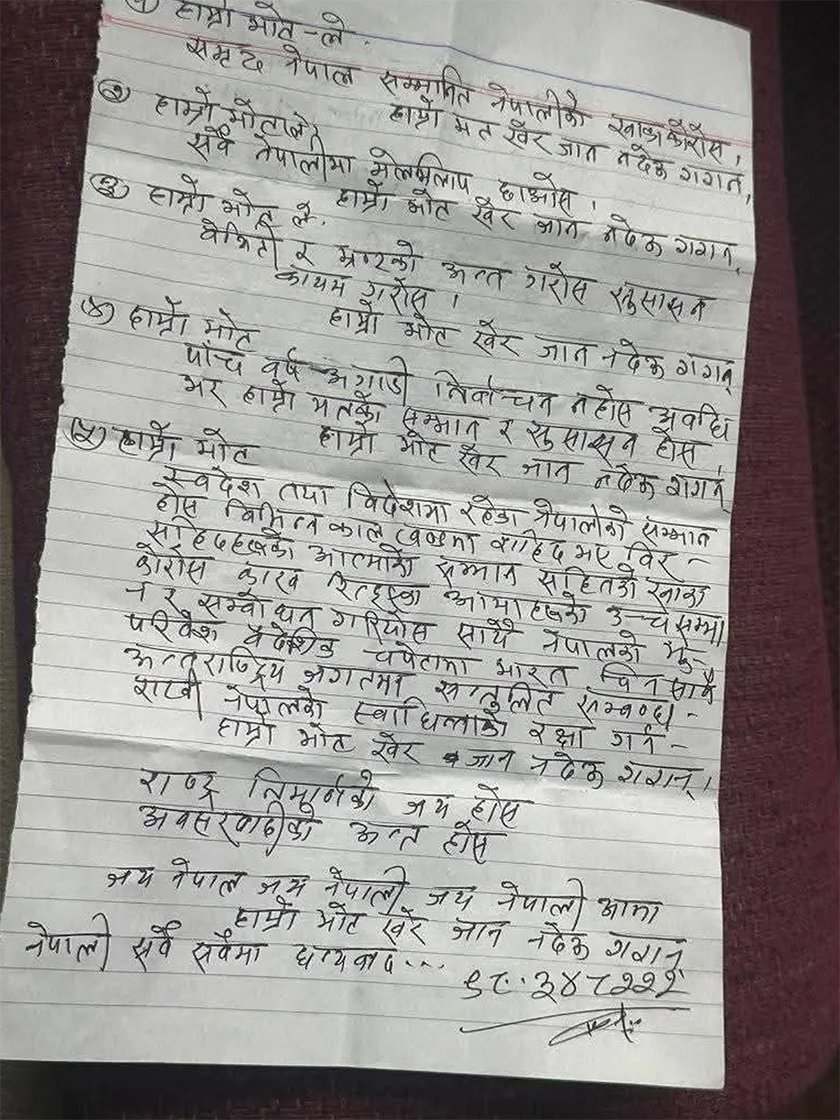 १) हाम्रो भोट-ले.
समृद्ध नेपाल सम्मानित नेपालीको खाका कोरोस,
हाम्रो मत खेर जान नदेऊ गगन,
२) हाम्रो भोटले,
सवै नेपालीमा मेलमिलाप छाओस,
हाम्रो भोट खेर जान नदेऊ गगन,
३) हाम्रो भोट ले.
वेथिटी र भ्रष्टको अन्त गरोस सुसासन
कायम गरोस।
हाम्रो भोट खेर जान नदेऊ गगन्
४) हाम्रो भोट
पाँच वर्ष अगाडी निर्वाचन नहोस अवधि
भर हाम्रो मतको सम्मान र सुसासन होस,
हाम्रो भोट खेर जान नदेऊ गगन्
५) हाम्रो भोट
स्वदेश तथा विदेशमा रहेका नेपालीको सम्मान
होस विभिन्न काल खण्डमा शहिद भए विर-
सहिदहरूको आत्माको सम्मान सहितको खाका
कोरोस काख रित्तिएका आमाहरूको उच्च सम्मा
न र सम्वोधन गरियोस साथै नेपालको भु-
परिवेश वैदेशिक चपेटामा भारत चिन साथै
अन्तराष्ट्रिय जगतमा सन्तुलित सम्बन्ध-
राखी नेपालको स्वाधिन्ताको रक्षा गर्न-
हाम्रो भोट खेर जान नदेऊ गगन्।
राष्ट्र निमार्णको जय होस
अवसरवादीको अन्त होस
जय नेपाल जय नेपाली जय नेपाली आमा
हाम्रो भोट खेर जान नदेऊ गगन्
नेपाली सवै सवैमा धन्यवाद...